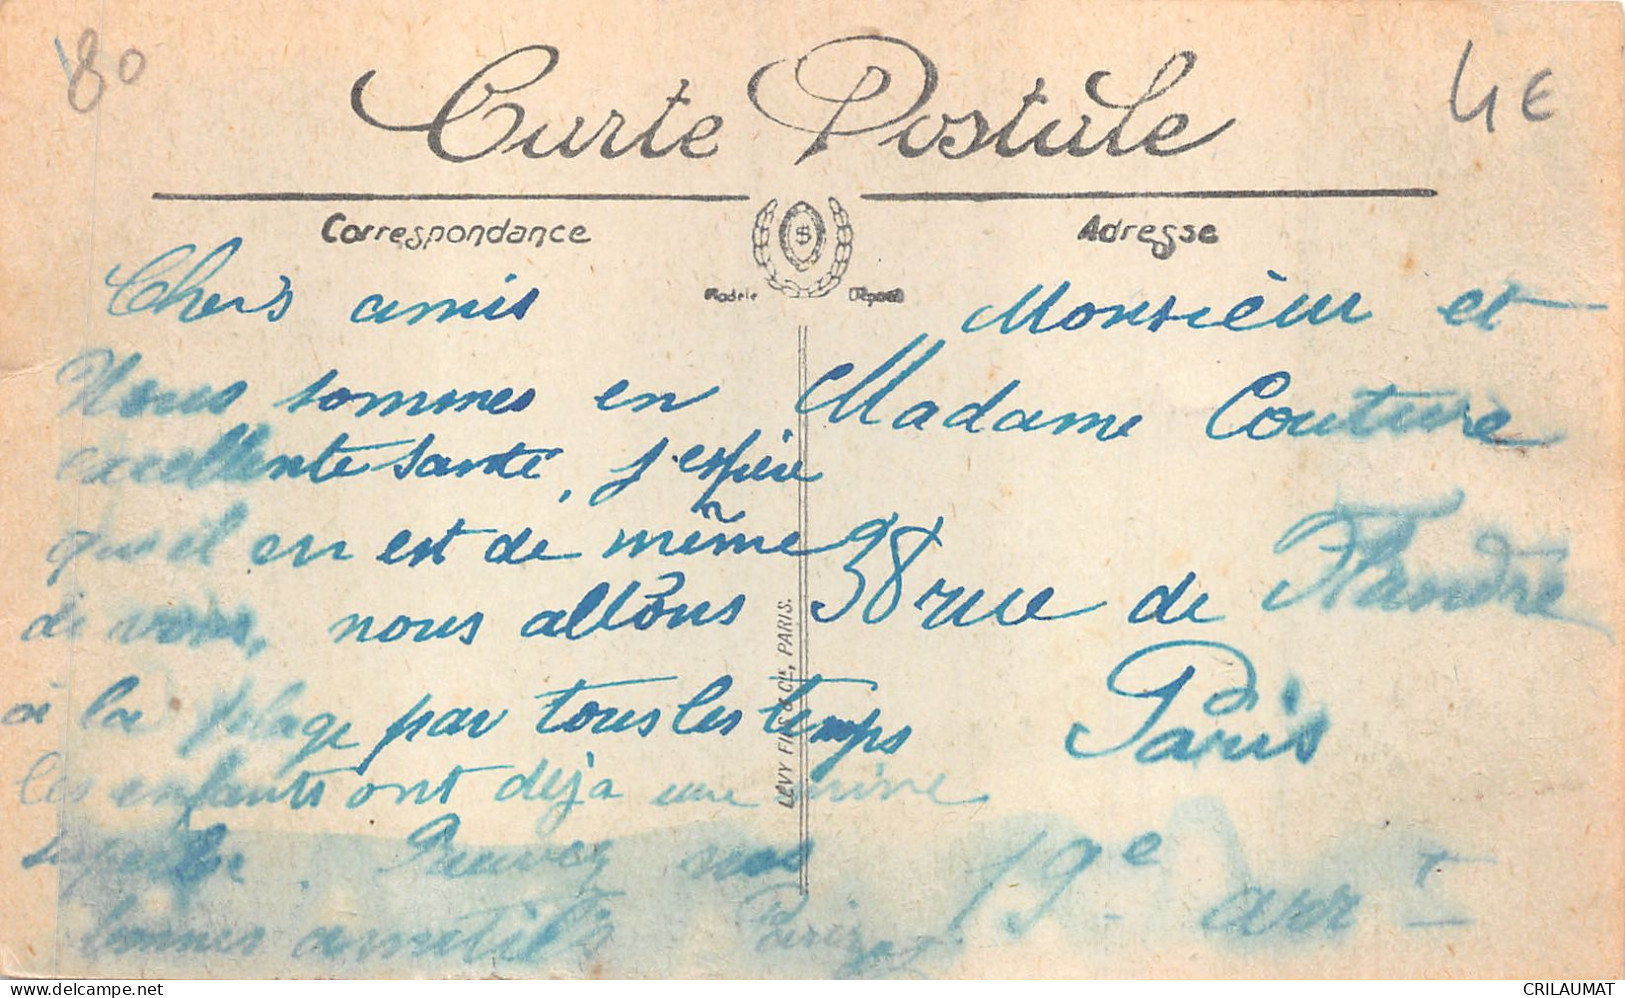 80
4€
Carte Postale
Correspondance
Adresse
Modèle Déposé
Chers amis
Nous sommes en
excellente santé, j'espère
qu'il en est de même
de vous, nous allons
à la plage par tous les temps
les enfants ont déjà une mine
superbe. Recevez nos
bonnes amitiés
Monsieur et
Madame Couture
38 rue de Flandre
Paris
19e arrt
LÉVY FILS & Cie, PARIS.
CRILAUMAT